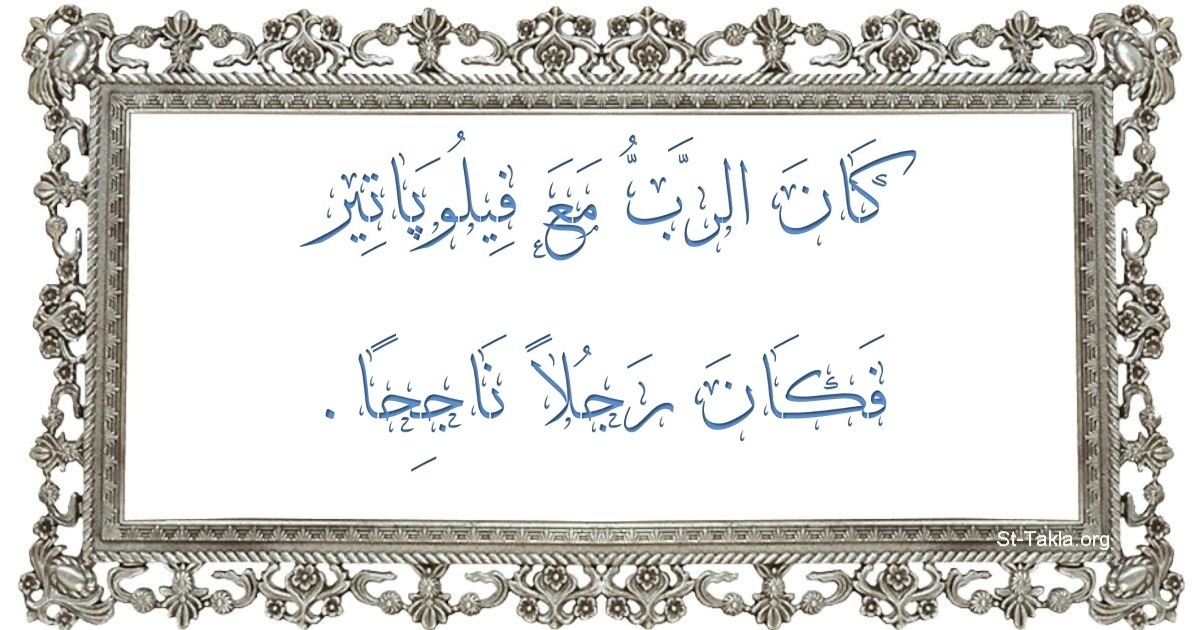 كَانَ الرَّبُّ مَعَ فِيلُوپَاتِير
فَكَانَ رَجُلاً نَاجِحًا .
St-Takla.org